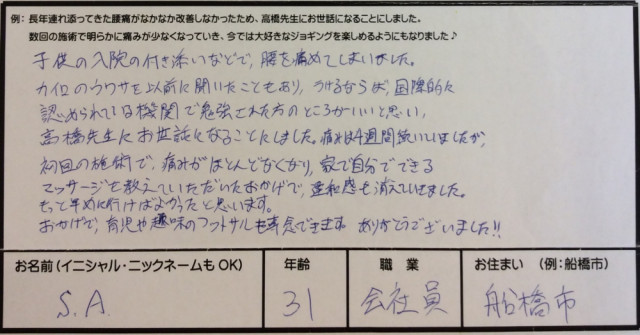 例：長年連れ添ってきた腰痛がなかなか改善しなかったため、高橋先生にお世話になることにしました。
数回の施術で明らかに痛みが少なくなっていき、今では大好きなジョギングを楽しめるようにもなりました♪
子供の入院の付き添いなどで、腰を痛めてしまいました。
カイロのウワサを以前に聞いたこともあり、うけるならば、国際的に
認められている機関で勉強された方のところがいいと思い、
高橋先生にお世話になることにしました。痛みは4週間続いていましたが、
初回の施術で、痛みがほとんどなくなり、家で自分でできる
マッサージを教えていただいたおかげで、違和感も消えていきました。
もっと早めに行けばよかったと思います。
おかげで、育児や趣味のフットサルも専念できます。ありがとうございました!!
お名前（イニシャル・ニックネームも OK）
年齢
職業
お住まい （例：船橋市）
S.A.
31
会社員
船橋市